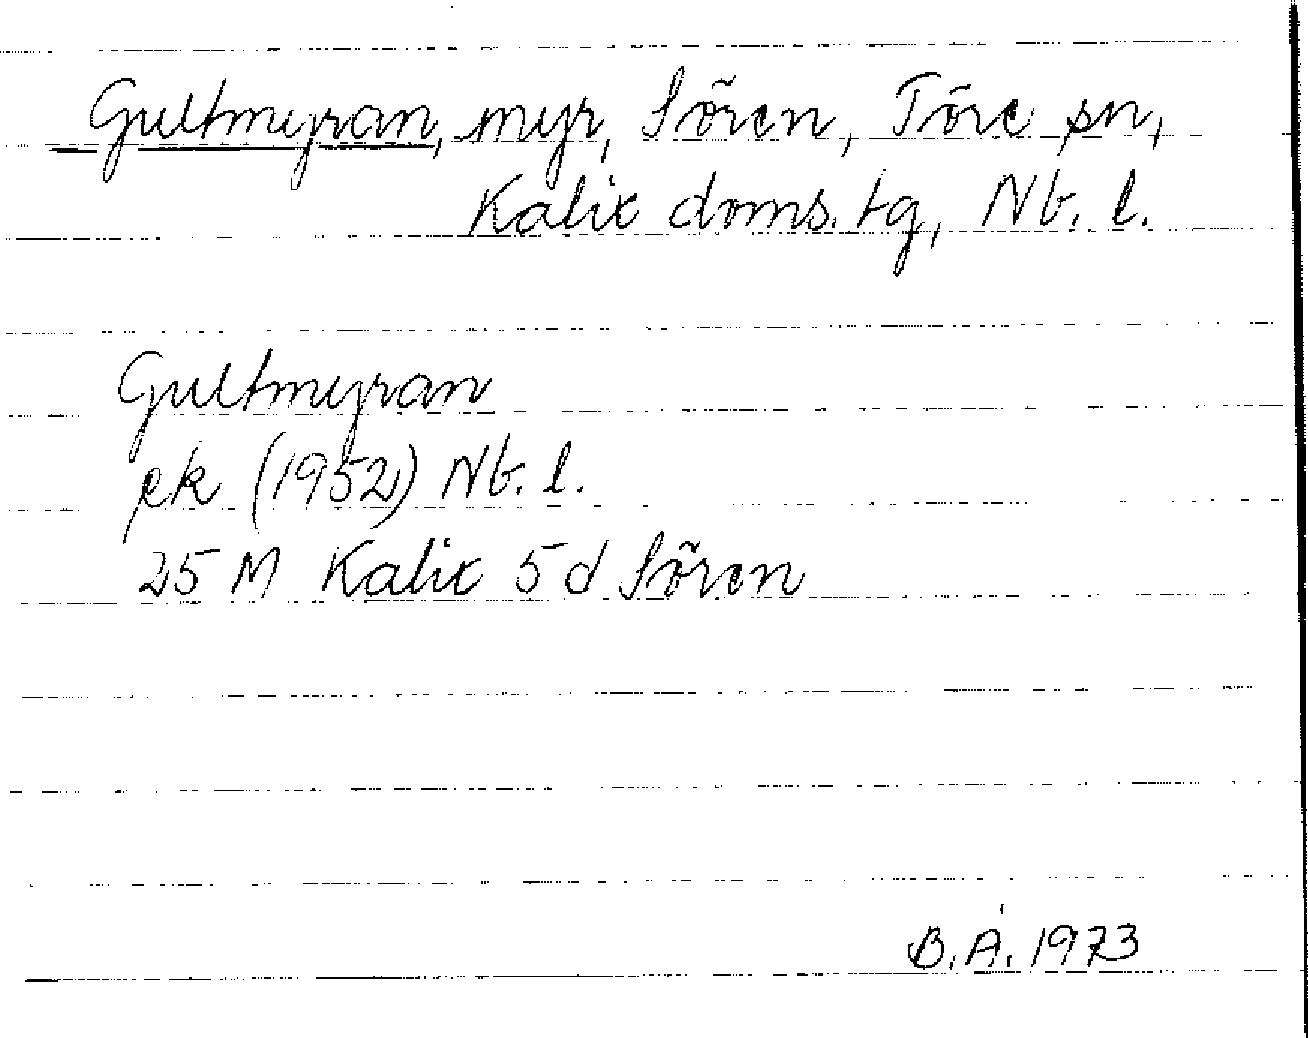 Gultmyran, myr, Sören, Töre sn,
Kalix doms. tg, Nb. l.
Gultmyran
ek (1952) Nb. l.
25 M Kalix 5 d Sören
B. Å. 1973